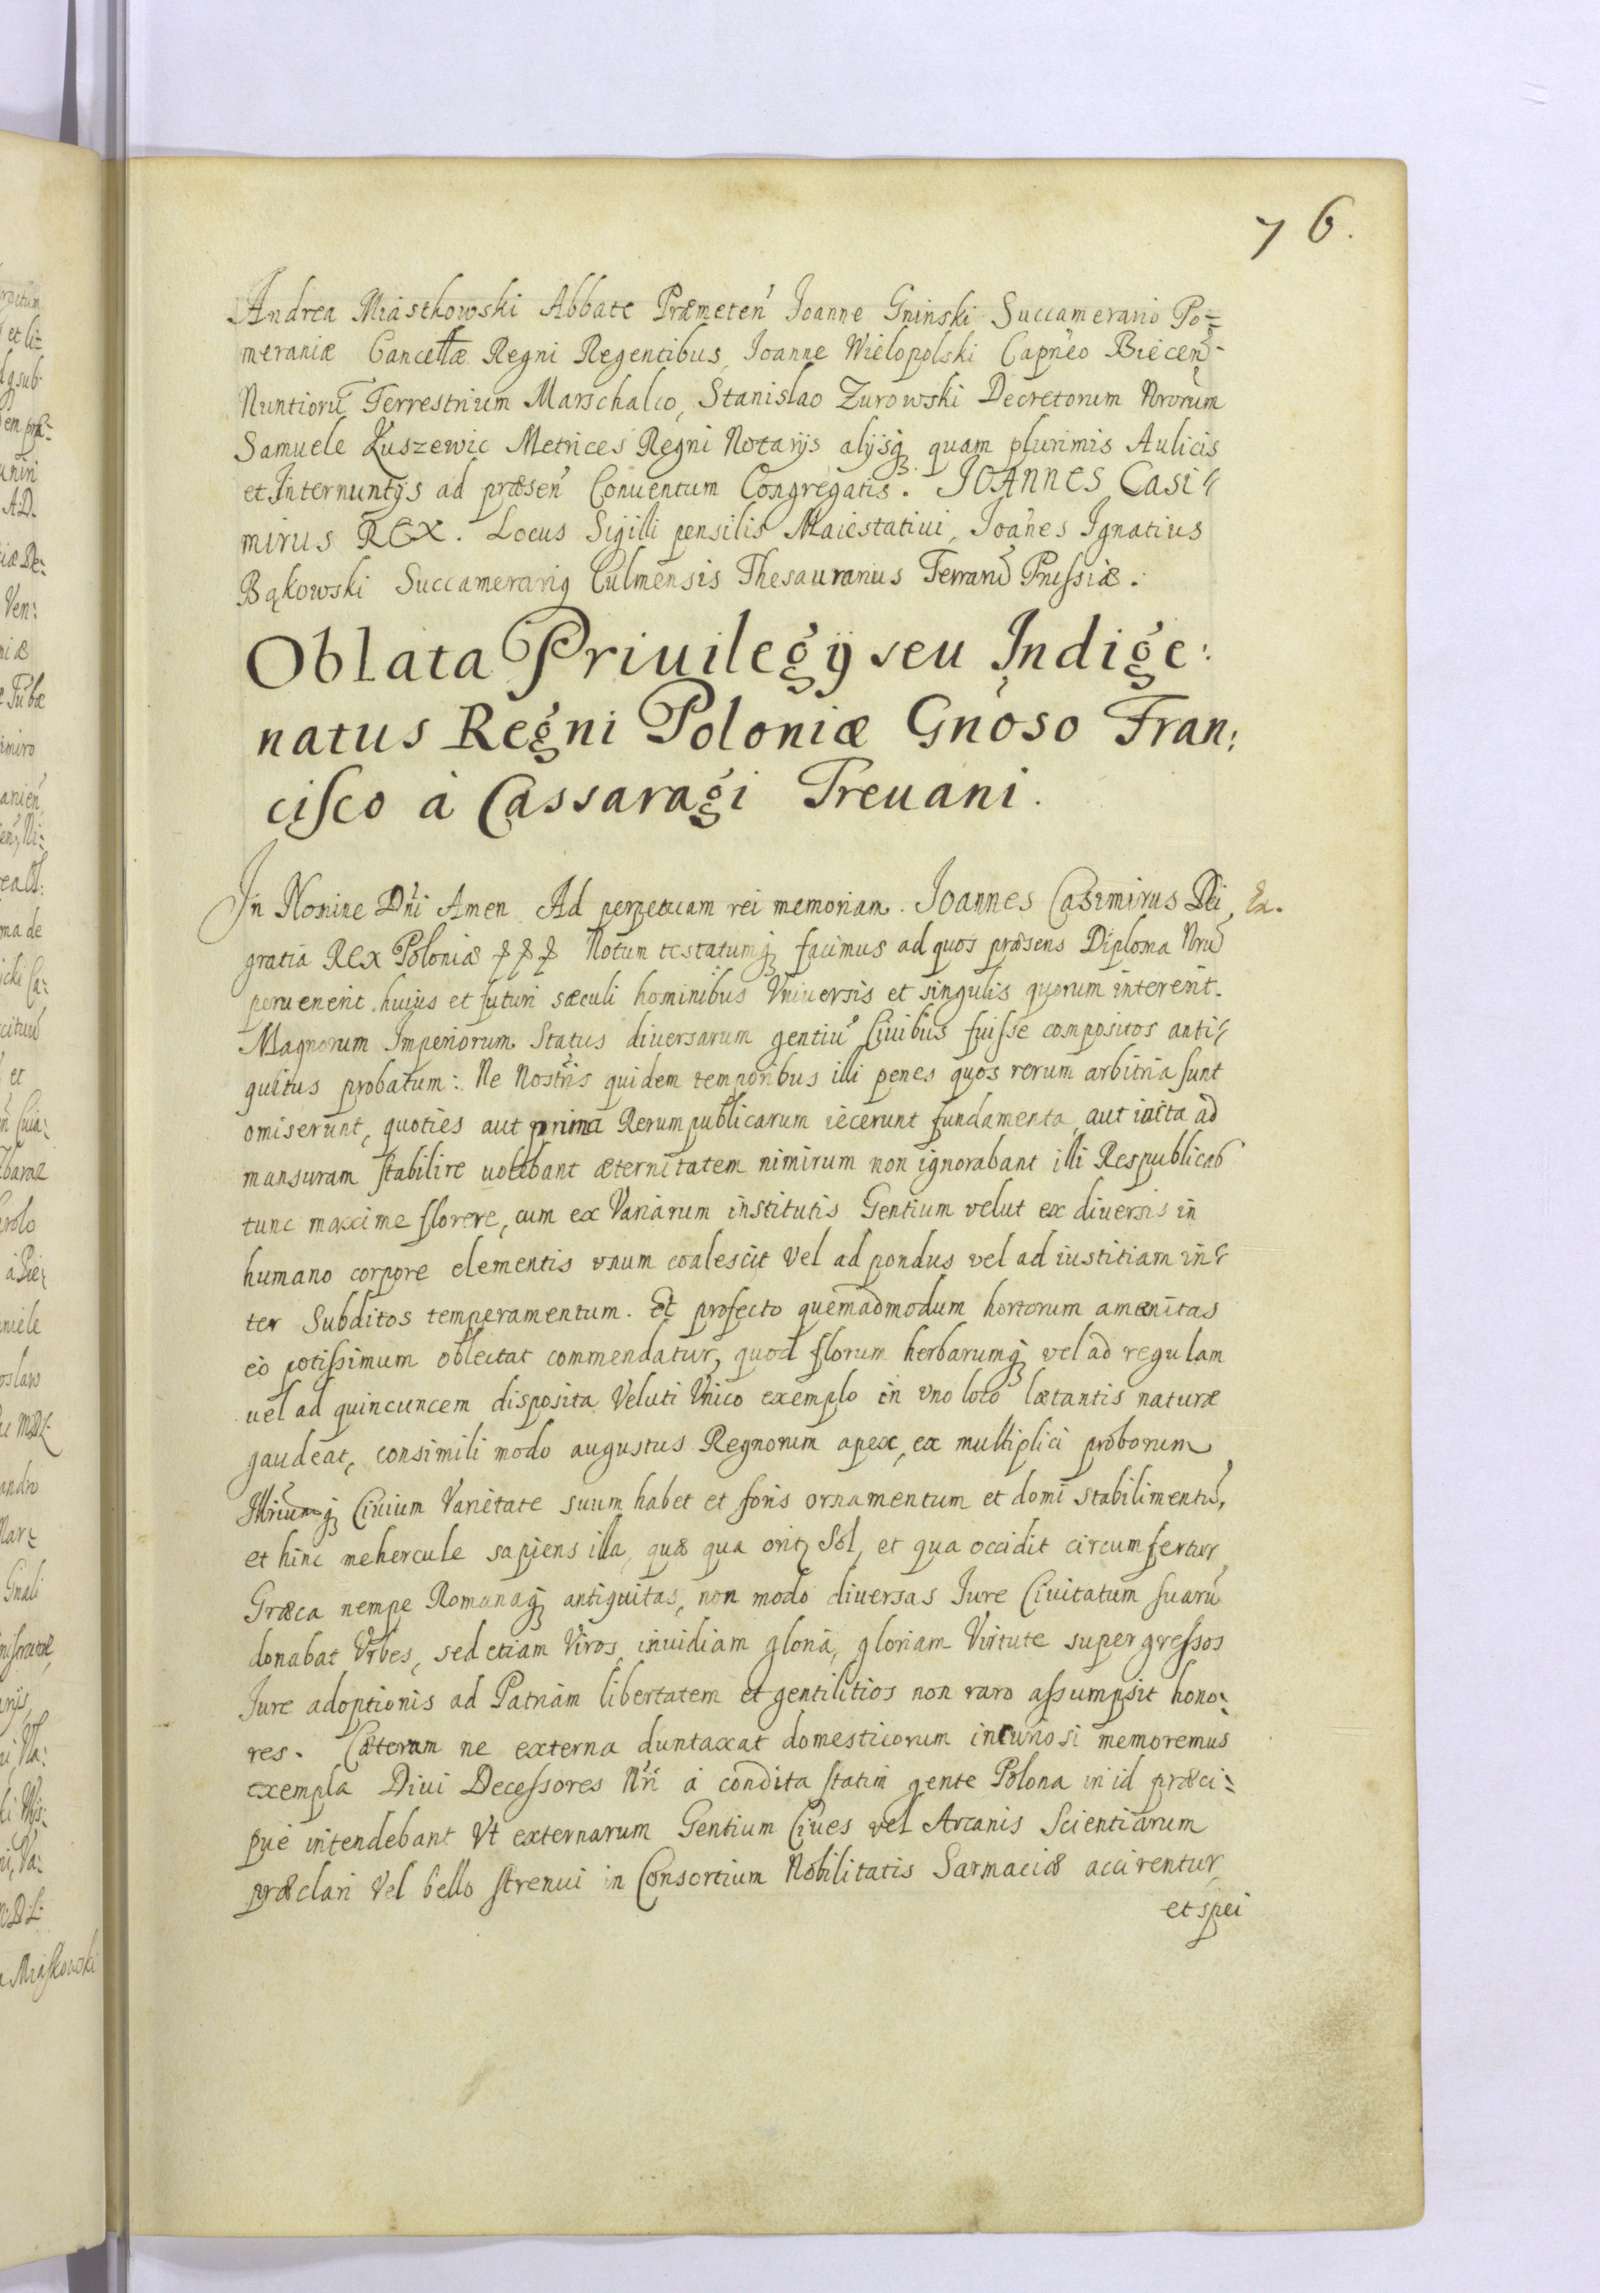 76.
Andrea Miastkowski Abbate Præmeteń Joanne Gninski Succamerario Po=
meraniæ Cancełłæ Regni Regentibus, Joanne Wielopolski Capńeo Biecen̄
Nuntiorū Terrestrium Marschalco, Stanislao Zurowski Decretorum Nrorum
Samuele Kuszewic Metrices Regni Notarijs alijsq₃ quam plurimis Aulicis
et Internuntijs ad præseń Conuentum Congregatis. JOANNES CASI=
MIRUS REX. Locus Sigilli pensilis Maiestatiui, Joańes Ignatius
Bąkowski Succamerariq Culmensis Thesaurarius Terrarū Prussiæ.
Oblata Priuilegij seu Indige:
natus Regni Poloniæ Gnoso Fran:
cisco à Cassaragi Treuani.
In Nomine Dńi Amen Ad perpetuam rei memoriam. Joannes Casimirus Dei
Ex.
gratia Rex Poloniæ Notum testatumq₃ facimus ad quos præsens Diploma Nrū
peruenerit huius et futuri sæculi hominibus Vniuersis et singulis quorum intererit.
Magnorum Imperiorum Status diuersarum gentiū Ciuibus fuisse compositos anti=
quitus probatum: Ne Nostris quidem temporibus illi penes quos rerum arbitria sunt
omiserunt, quoties aut prima Rerumpublicarum iecerunt fundamenta, aut iacta ad
mansuram stabilire uolebant æternitatem nimirum non ignorabant illi Respublicas
tunc maxime florere, cum ex Variarum institutis Gentium velut ex diuersis in
humano corpore elementis vnum coalescit vel ad pondus vel ad iustitiam in=
ter Subditos temperamentum. Et profecto quemadmodum hortorum amænitas
eo potissimum oblectat commendatur, quod florum herbarumq₃ vel ad regulam
uel ad quincuncem disposita Veluti Vnico exemplo in vno loco lætantis naturæ
gaudeat, consimili modo augustus Regnorum apex, ex multiplici proborum
Ciuium Varietate suum habet et foris ornamentum et domi stabilimentū,
et hinc mehercule sapiens illa, quæ qua orit₃ Sol, et qua occidit circumfertur
Græca nempe Romanaq₃ antiquitas, non modo diuersas Jure Ciuitatum suarū
donabat Vrbes, sed etiam Viros inuidiam gloriâ, gloriam Virtute supergressos
Jure adoptionis ad Patriam libertatem et gentilitios non raro assumpsit hono=
res. Cæterum ne externa duntaxat domesticorum incuriosi memoremus
exempla Diui Decessores Nŕi à condita statim gente Polona in id præci=
pue intendebant Vt externarum Gentium Ciues vel Arcanis Scientiarum
præclari Vel bello strenui in Consortium Nobilitatis Sarmaciæ accirentur,
et spei